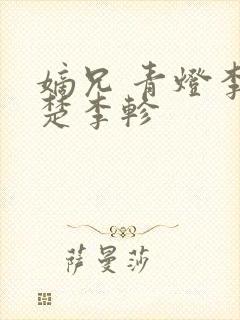 嫡兄 青燈李
楚李軫
萨曼莎